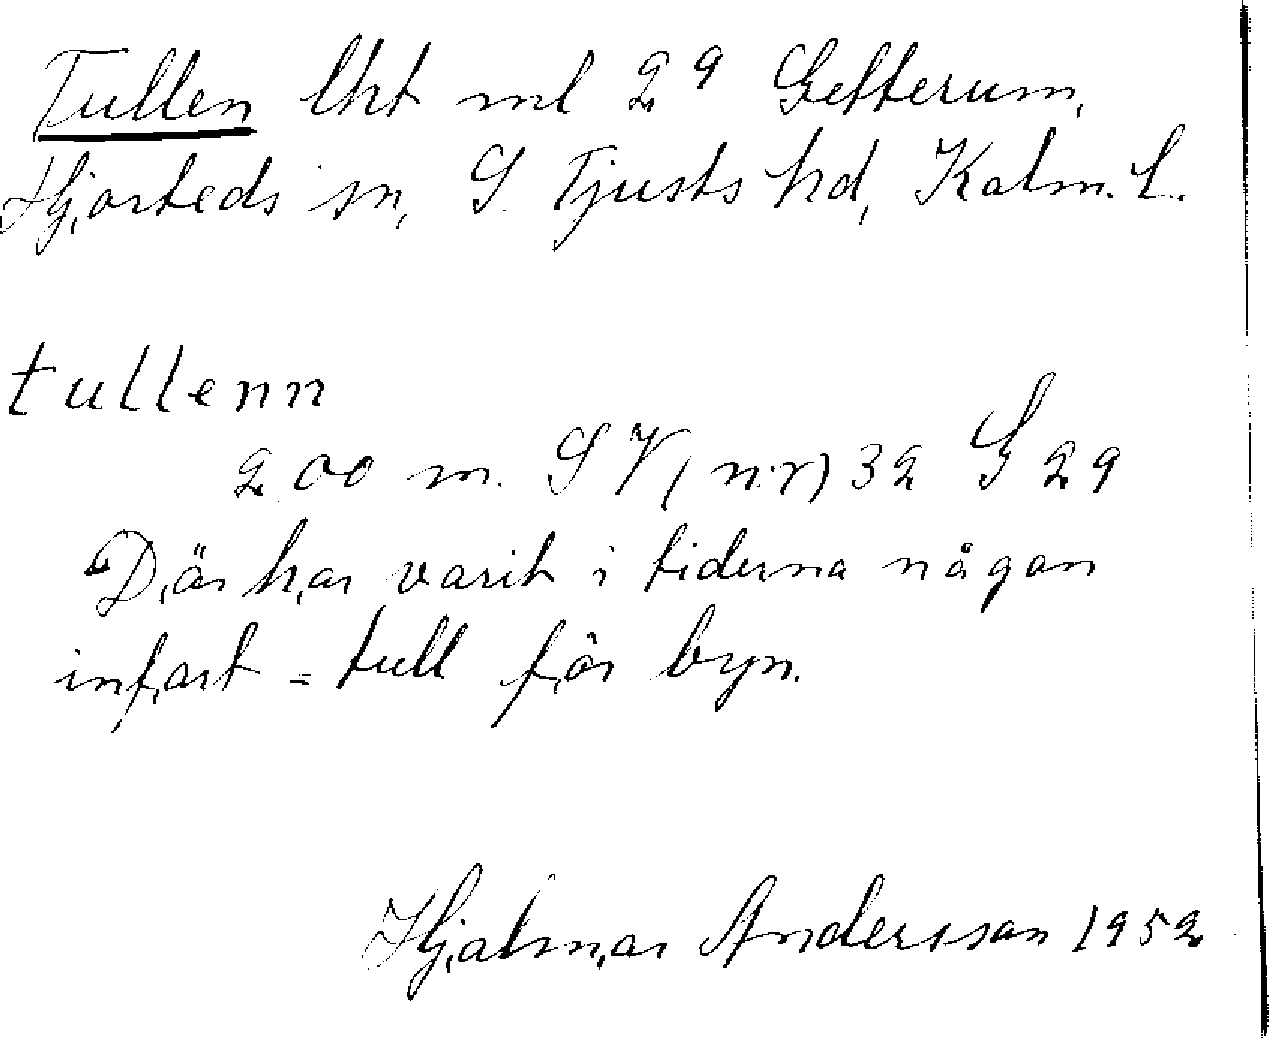 Tullen lht ml 29 Getterum,
Hjorteds sn, S. Tjusts hd, Kalm. L.
tullenn
200 m. SV (nr) 32 G 29
"Där har varit i tiderna någon
infart-tull för byn.
Hjalmar Andersson 1952